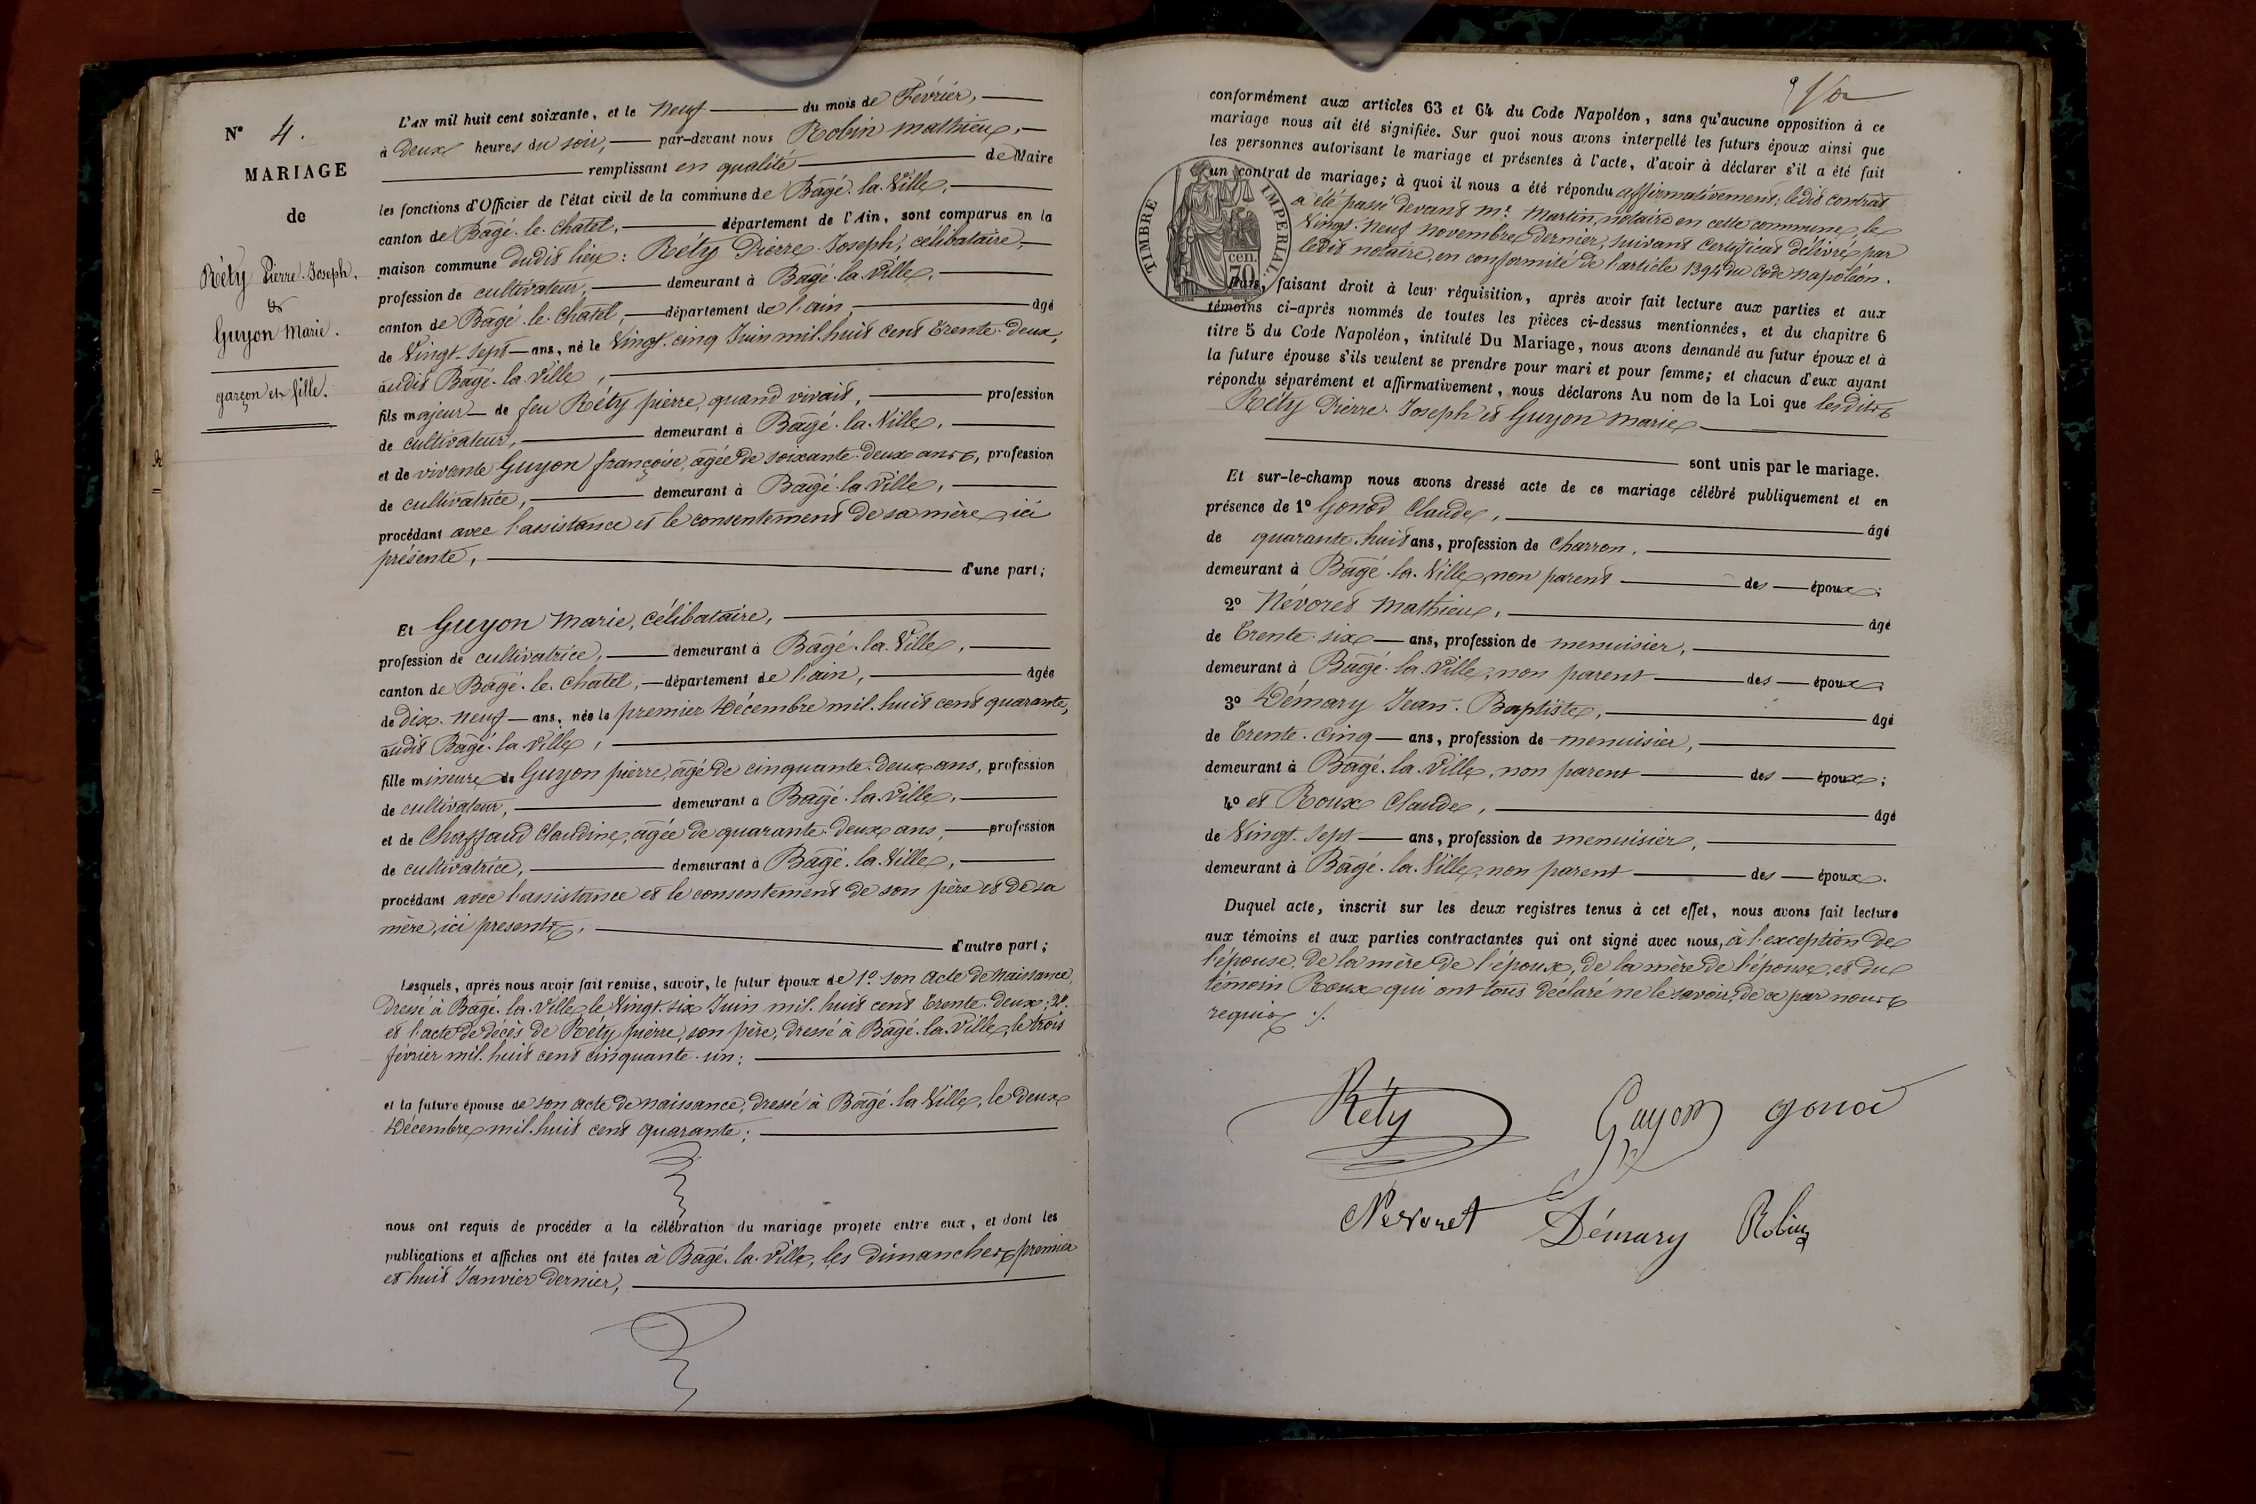 N° 4.
MARIAGE
de
Réty Pierre-Joseph.
&
Guyon Marie.
garçon et fille.
L'AN mil huit cent soixante, et le Neuf du mois de Février,
à Deux heures du soir, par-devant nous Robin Mathieu,
remplissant en qualité de Maire
les fonctions d'Officier de l'état civil de la commune de Bâgé-la-Ville,
canton de Bâgé-le-Chatel, département de l'Ain, sont comparus en la
maison commune dudit lieu : Réty Pierre-Joseph, célibataire,
profession de cultivateur, demeurant à Bâgé-la-Ville,
canton de Bâgé-le-Chatel, département de l'ain, âgé
de Vingt-Sept ans, né le Vingt-cinq Juin mil-huit cent trente-deux,
audit Bâgé-la-Ville,
fils majeur de feu Réty pierre, quand vivait, profession
de cultivateur, demeurant à Bâgé-la-Ville,
et de vivante Guyon françoise, âgée de soixante-deux ans, profession
de cultivatrice, demeurant à Bâgé-la-Ville,
procédant avec l'assistance et le consentement de sa mère, ici
présente, d'une part;
Et Guyon Marie, célibataire,
profession de cultivatrice, demeurant à Bâgé-la-Ville,
canton de Bâgé-le-Chatel, département de l'ain, âgée
de dix-neuf ans, née le premier Décembre mil-huit cent quarante,
audit Bâgé-la-Ville,
fille mineure de Guyon pierre, âgé de cinquante-deux ans, profession
de cultivateur, demeurant à Bâgé-la-Ville,
et de Chaffaud Claudine, âgée de quarante-deux ans, profession
de cultivatrice, demeurant à Bâgé-la-Ville,
procédant avec l'assistance et le consentement de son père et de sa
mère, ici présents, d'autre part;
Lesquels, après nous avoir fait remise, savoir, le futur époux de 1° son acte de Naissance,
dressé à Bâgé-la-Ville, le Vingt-six Juin mil-huit cent trente-deux; 2°
et l'acte de décès de Réty pierre, son père, dressé à Bâgé-la-Ville, le trois
février mil-huit cent cinquante-un;
et la future épouse de son acte de naissance, dressé à Bâgé-la-Ville, le deux
Décembre mil-huit cent quarante;
nous ont requis de procéder à la célébration du mariage projeté entre eux, et dont les
publications et affiches ont été faites à Bâgé-la-Ville, les dimanches premier
et huit Janvier dernier,
conformément aux articles 63 et 64 du Code Napoléon, sans qu'aucune opposition à ce
mariage nous ait été signifiée. Sur quoi nous avons interpellé les futurs époux ainsi que
les personnes autorisant le mariage et présentes à l'acte, d'avoir à déclarer s'il a été fait
un contrat de mariage; à quoi il nous a été répondu affirmativement; ledit contrat
a été passé devant Me. Martin, notaire en cette commune, le
Vingt-Neuf Novembre dernier, suivant certificat délivré par
ledit notaire, en conformité de l'article 1394 du Code Napoléon.
TIMBRE IMPÉRIAL
70 cen.
Puis, faisant droit à leur réquisition, après avoir fait lecture aux parties et aux
témoins ci-après nommés de toutes les pièces ci-dessus mentionnées, et du chapitre 6
titre 5 du Code Napoléon, intitulé Du Mariage, nous avons demandé au futur époux et à
la future épouse s'ils veulent se prendre pour mari et pour femme; et chacun d'eux ayant
répondu séparément et affirmativement, nous déclarons Au nom de la Loi que lesdits
Réty Pierre-Joseph et Guyon Marie
sont unis par le mariage.
Et sur-le-champ nous avons dressé acte de ce mariage célébré publiquement et en
présence de 1° Gonod Claude, âgé
de quarante-huit ans, profession de Charron,
demeurant à Bâgé-la-Ville, non parent des époux;
2° Névoret Mathieu, âgé
de trente-six ans, profession de menuisier,
demeurant à Bâgé-la-Ville, non parent des époux;
3° Démary Jean-Baptiste, âgé
de trente-cinq ans, profession de menuisier,
demeurant à Bâgé-la-Ville, non parent des époux;
4° et Roux Claude, âgé
de Vingt-Sept ans, profession de menuisier,
demeurant à Bâgé-la-Ville, non parent des époux.
Duquel acte, inscrit sur les deux registres tenus à cet effet, nous avons fait lecture
aux témoins et aux parties contractantes qui ont signé avec nous, à l'exception de
l'épouse, de la mère de l'époux, de la mère de l'épouse, et du
témoin Roux qui ont tous déclaré ne le savoir, de ce par nous
requis ./.
Réty Guyon gonod
Nevoret Démary Robin